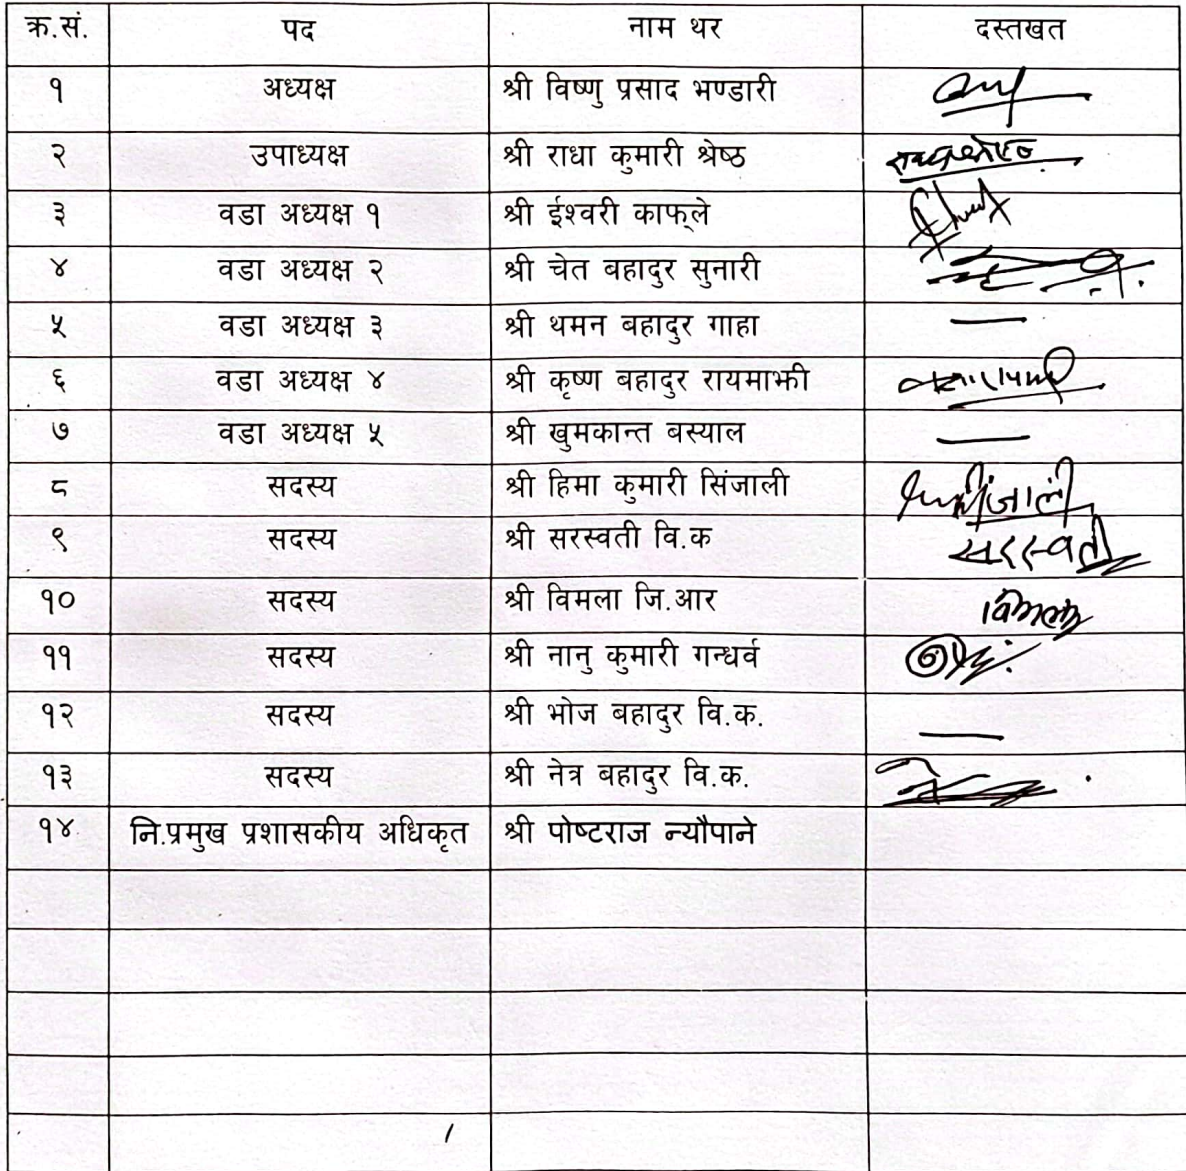 क्र.सं. पद नाम थर दस्तखत
१ अध्यक्ष श्री विष्णु प्रसाद भण्डारी
२ उपाध्यक्ष श्री राधा कुमारी श्रेष्ठ
३ वडा अध्यक्ष १ श्री ईश्वरी काफ्ले
४ वडा अध्यक्ष २ श्री चेत बहादुर सुनारी
५ वडा अध्यक्ष ३ श्री थमन बहादुर गाहा —
६ वडा अध्यक्ष ४ श्री कृष्ण बहादुर रायमाझी
७ वडा अध्यक्ष ५ श्री खुमकान्त बस्याल —
८ सदस्य श्री हिमा कुमारी सिंजाली
९ सदस्य श्री सरस्वती वि.क सरस्वती
१० सदस्य श्री विमला जि.आर विमला
११ सदस्य श्री नानु कुमारी गन्धर्व
१२ सदस्य श्री भोज बहादुर वि.क. —
१३ सदस्य श्री नेत्र बहादुर वि.क.
१४ नि.प्रमुख प्रशासकीय अधिकृत श्री पोष्टराज न्यौपाने